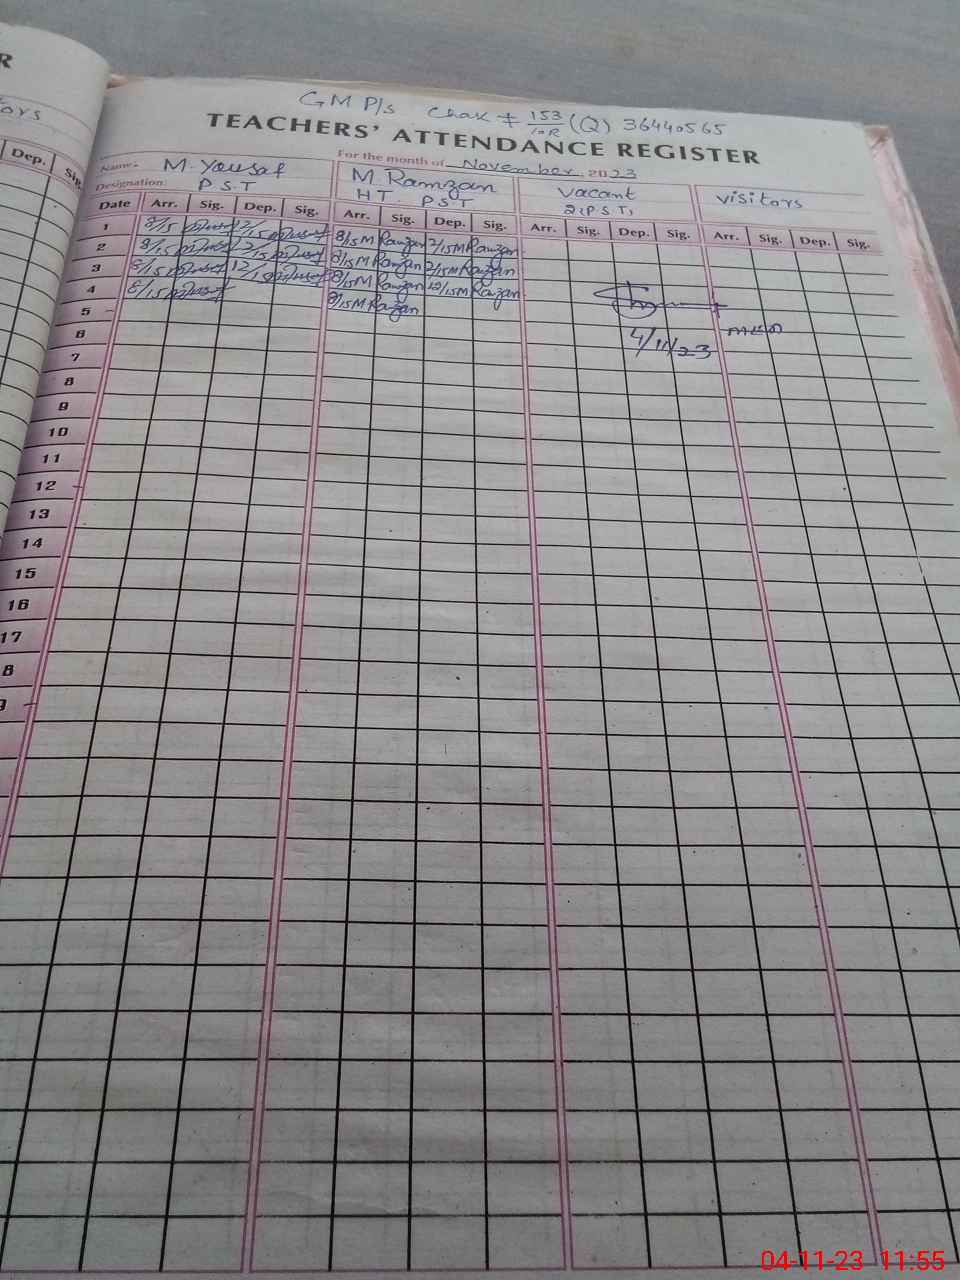 R
tors
Dep. Sig.
GMP/s Chak # 153/10R (Q) 36440565
TEACHERS' ATTENDANCE REGISTER
For the month of November 2023
Name: M. Yousaf M. Ramzan Vacant visitors
Designation: P S T HT. PST 2, P S T,
Date Arr. Sig. Dep. Sig. Arr. Sig. Dep. Sig. Arr. Sig. Dep. Sig. Arr. Sig. Dep. Sig.
1 8/15 12/15 8/15 M Ramzan 12/15 M Ramzan
2 8/15 12/15 8/15 M Ramzan 12/15 M Ramzan
3 8/15 12/15 8/15 M Ramzan 12/15 M Ramzan
4 8/15 8/15 M Ramzan
5
6 4/11/23
7
8
9
10
11
12
13
14
15
16
17
8
9
04-11-23 11:55